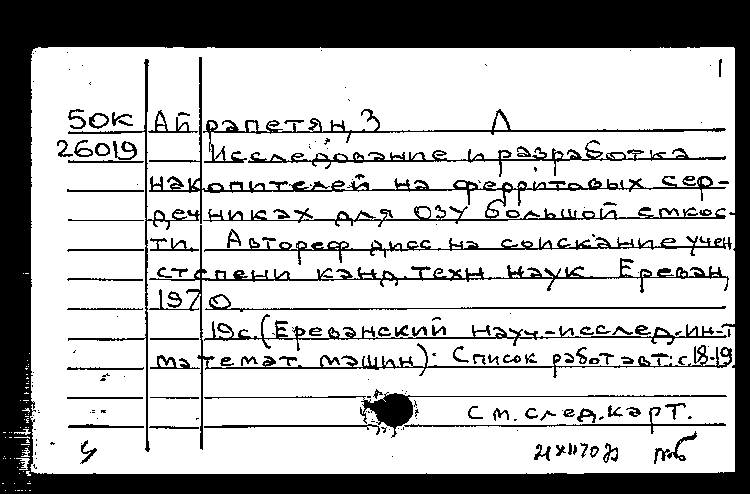 1
50К Айрапетян, З Л
26019 Исследование и разработка
накопителей на ферритовых сер-
дечниках для ОЗУ большой емкос-
ти. Автореф дисс. на соискание учен.
степени канд. техн. наук. Ереван,
1970.
19с. (Ереванский науч.-исслед. ин-т
математ. машин): Список работ авт. с. 18-19
см. след. карт.